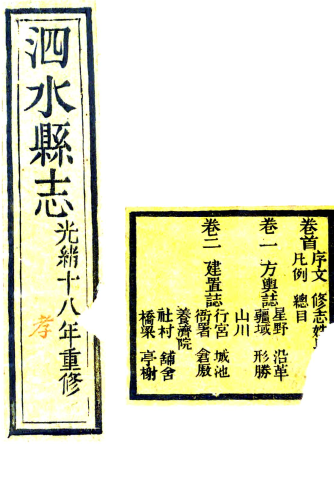 泗水縣志
光緒十八年重修
孝
卷首 序文 修志姓
凡例 總目
卷一 方輿誌 星野 沿革
疆域 形勝
山川
卷二 建置誌 行宮 城池
衙署 倉廒
養濟院
社村 舖舍
橋梁 亭榭